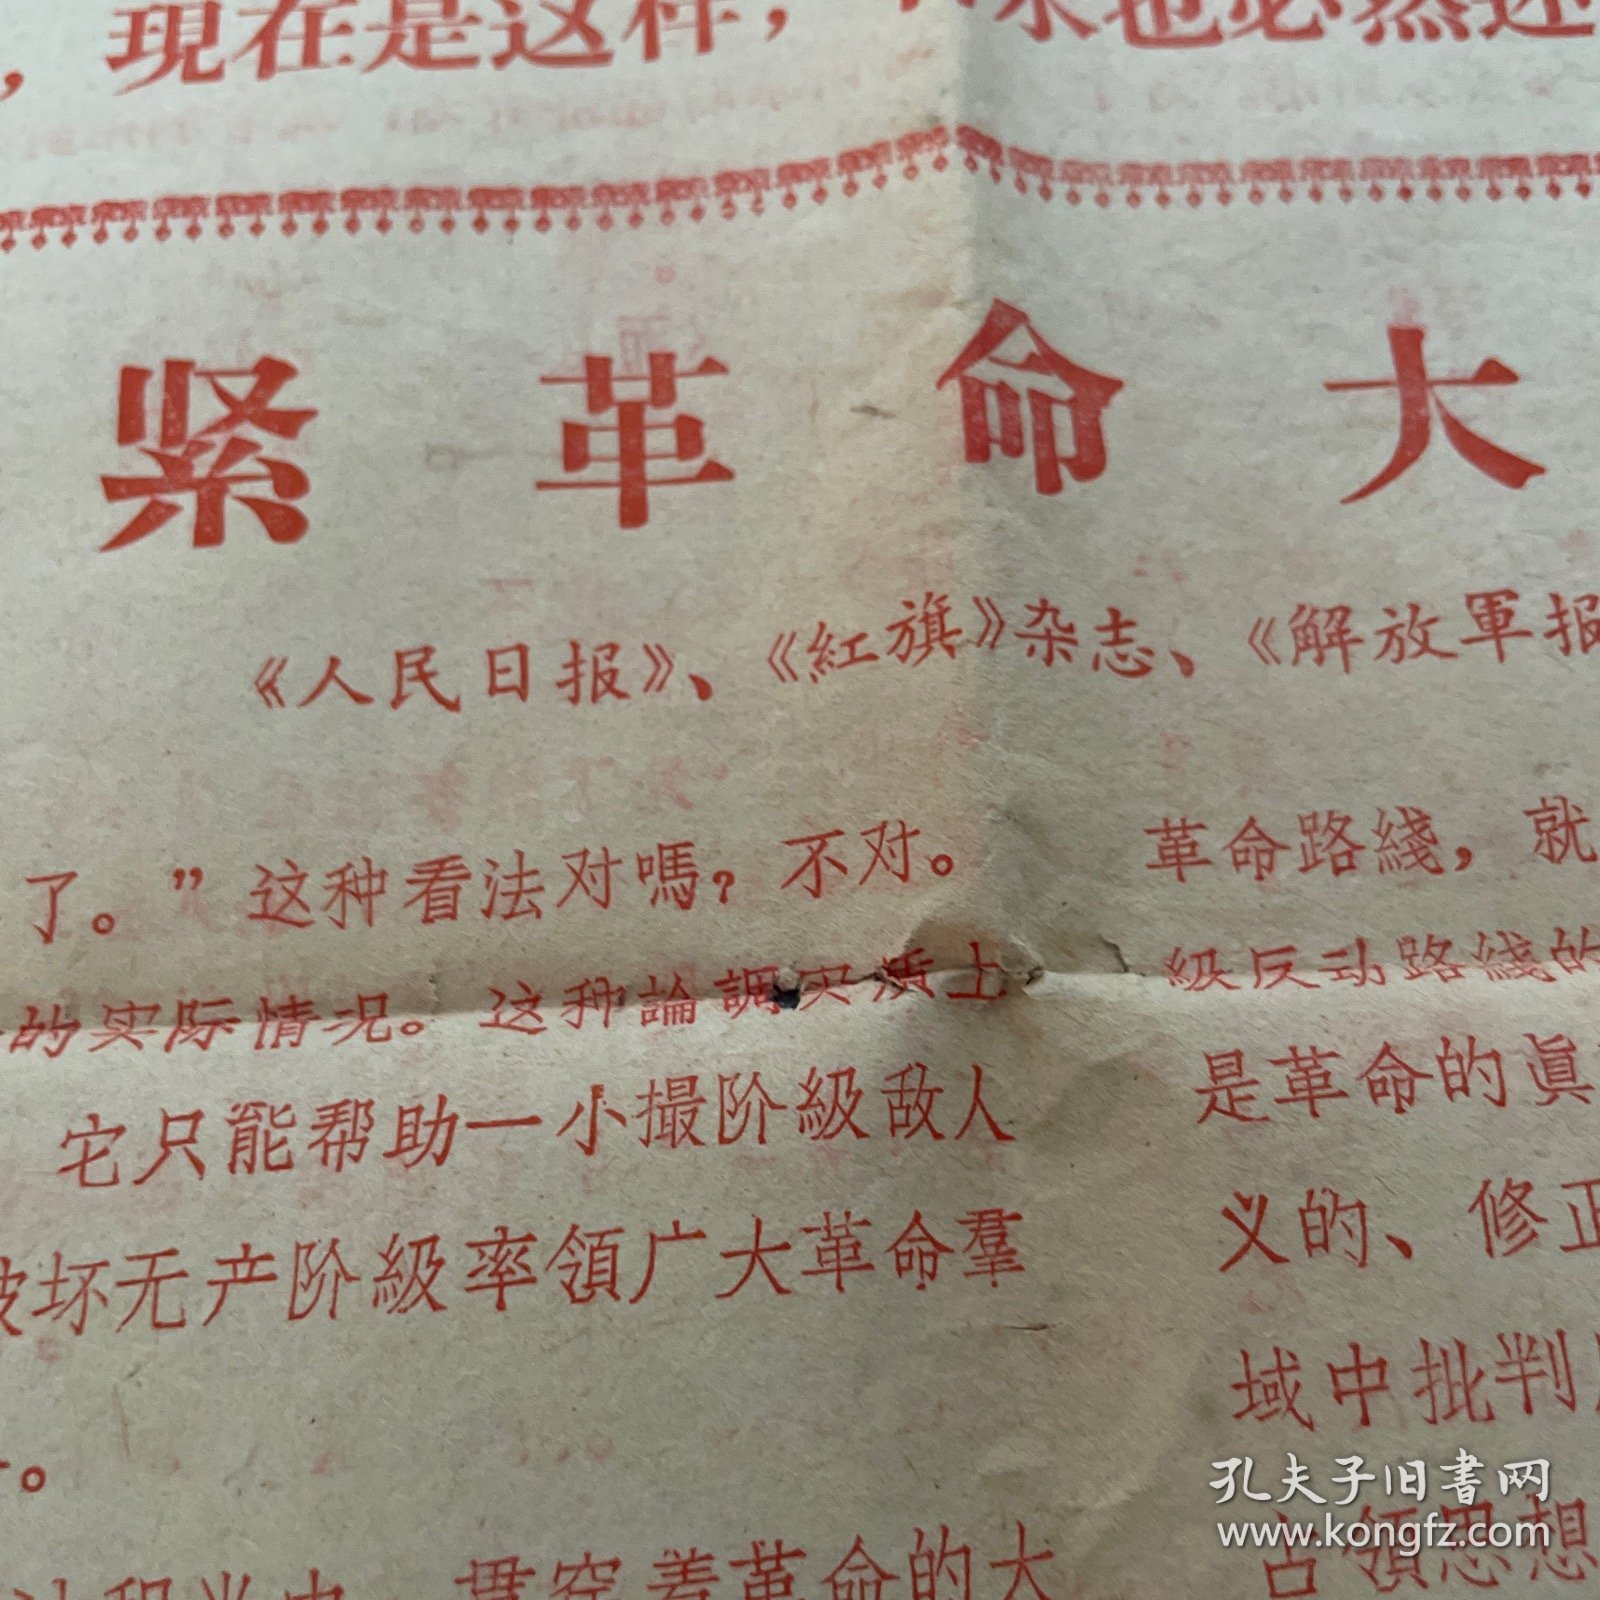 ，現在是这样，
来也必然还
紧革命大
《人民日报》、《紅旗》杂志、《解放軍报
了。”这种看法对嗎？不对。
的实际情况。这种論調实质上
它只能帮助一小撮阶級敌人
破坏无产阶級率領广大革命羣
。
贯穿着革命的大
革命路綫，就
級反动路綫的
是革命的眞
义的、修正
域中批判
占領思想
孔夫子旧書网
www.kongfz.com